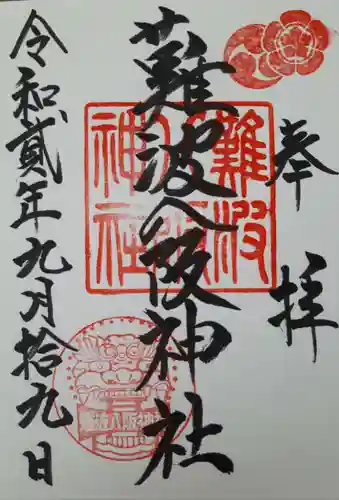 奉拝
難波八阪神社
令和貳年九月拾九日
難波八阪神社
難波八阪神社